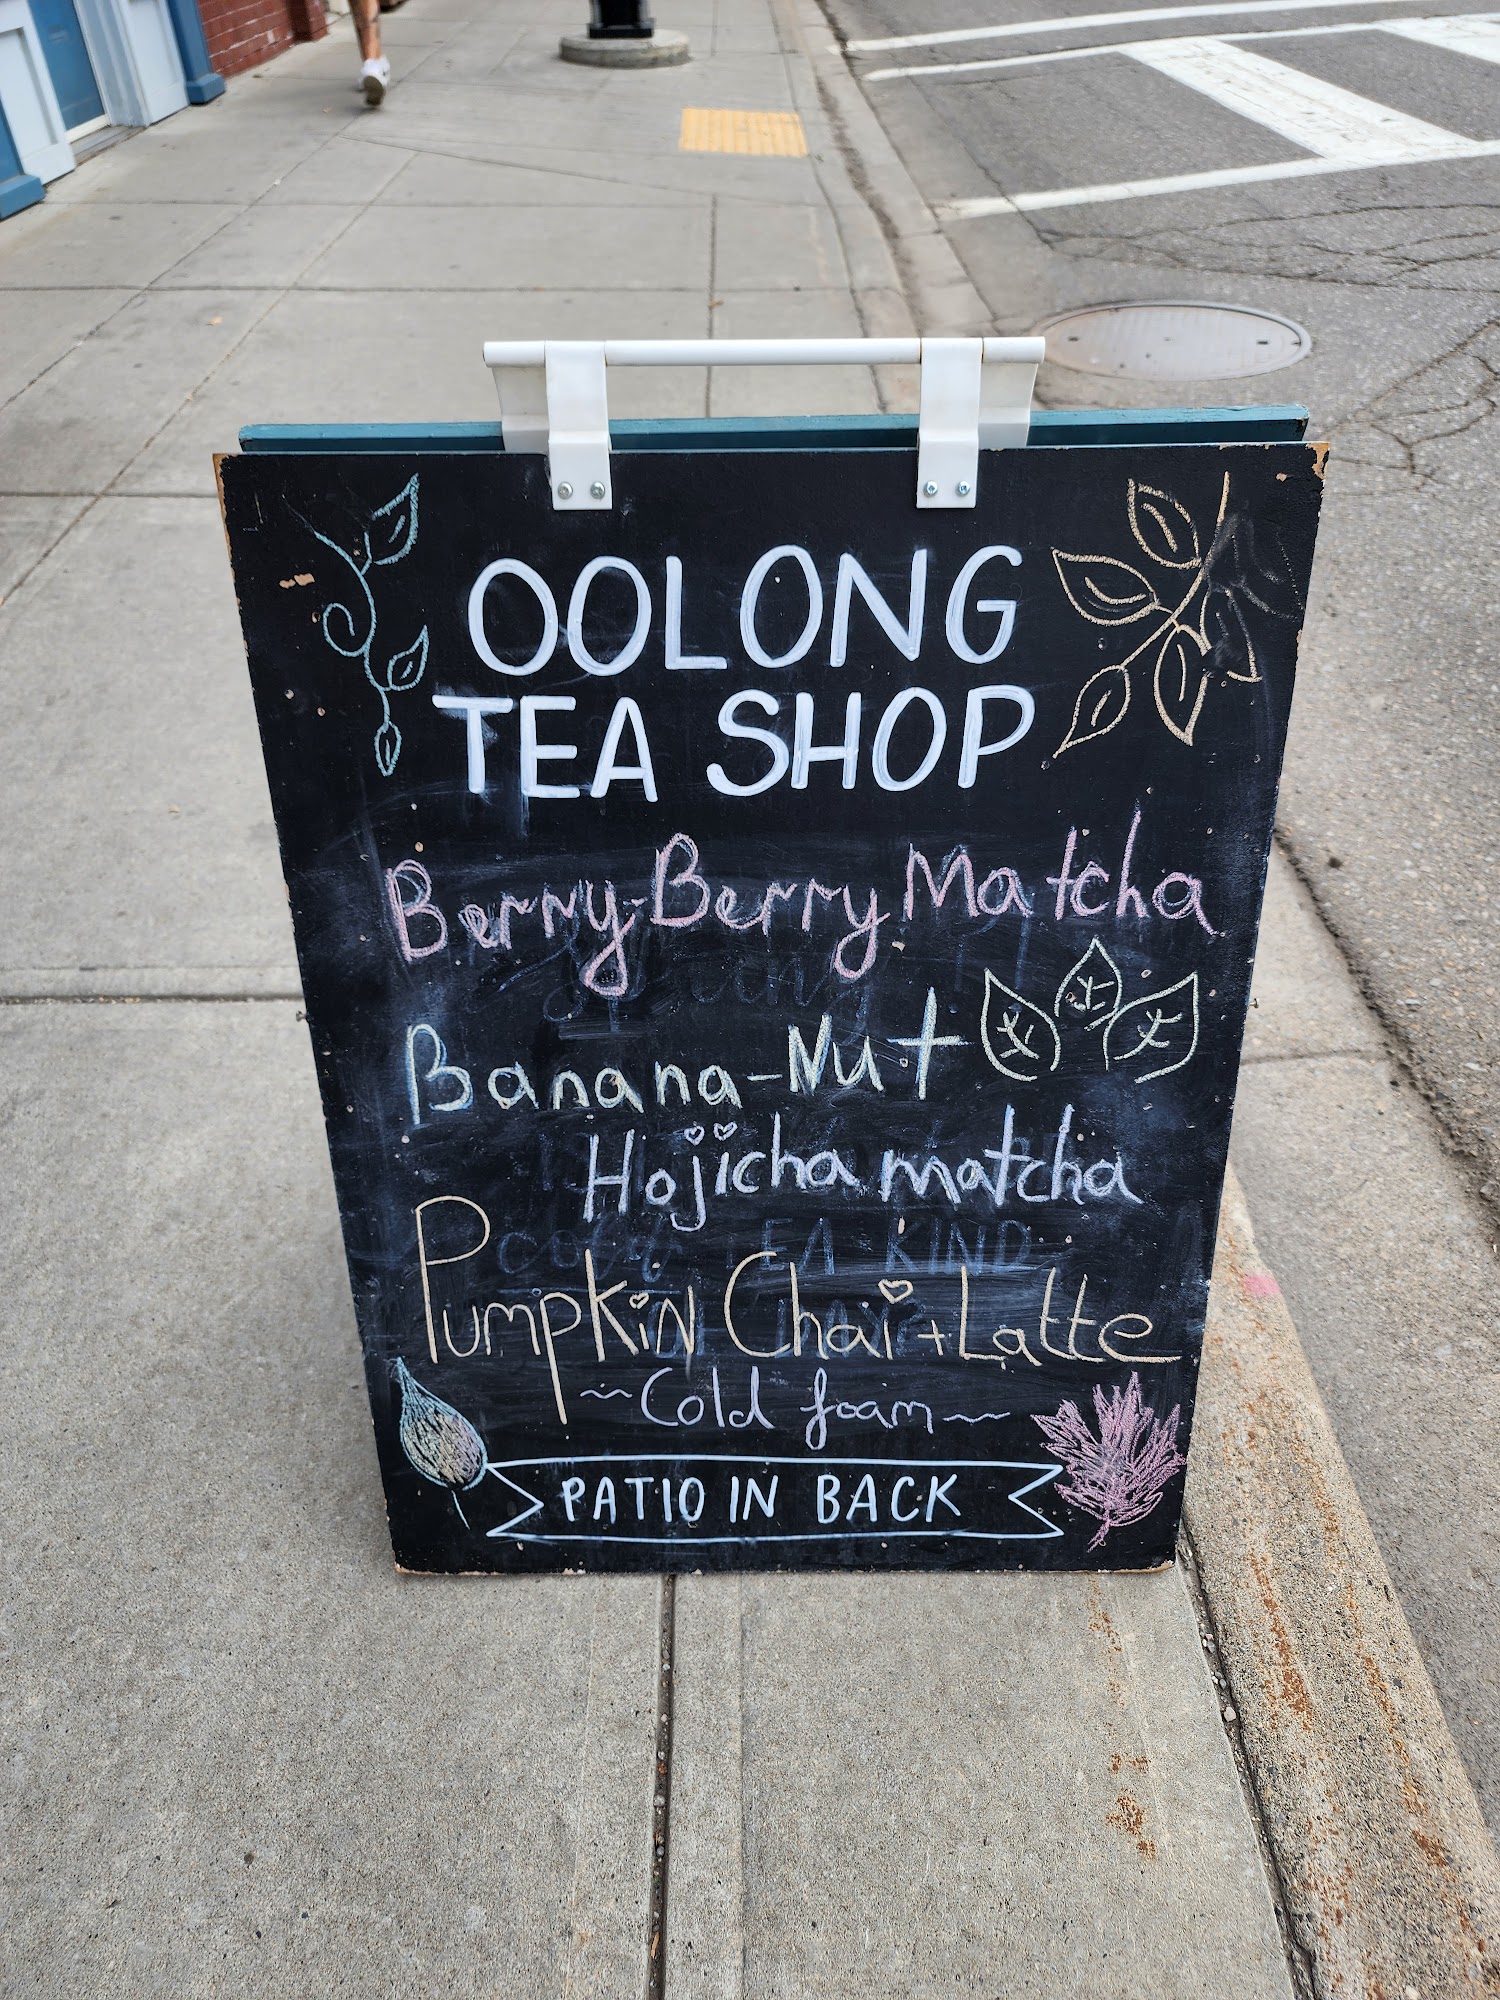 OOLONG
TEA SHOP
Berry-Berry Matcha
Banana-Nut
Hojicha matcha
Pumpkin Chai + Latte
~Cold foam~
PATIO IN BACK